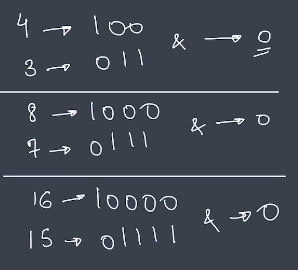 4 → 100 & → 0
3 → 011
8 → 1000 & → 0
7 → 0111
16 → 10000 & → 0
15 → 01111